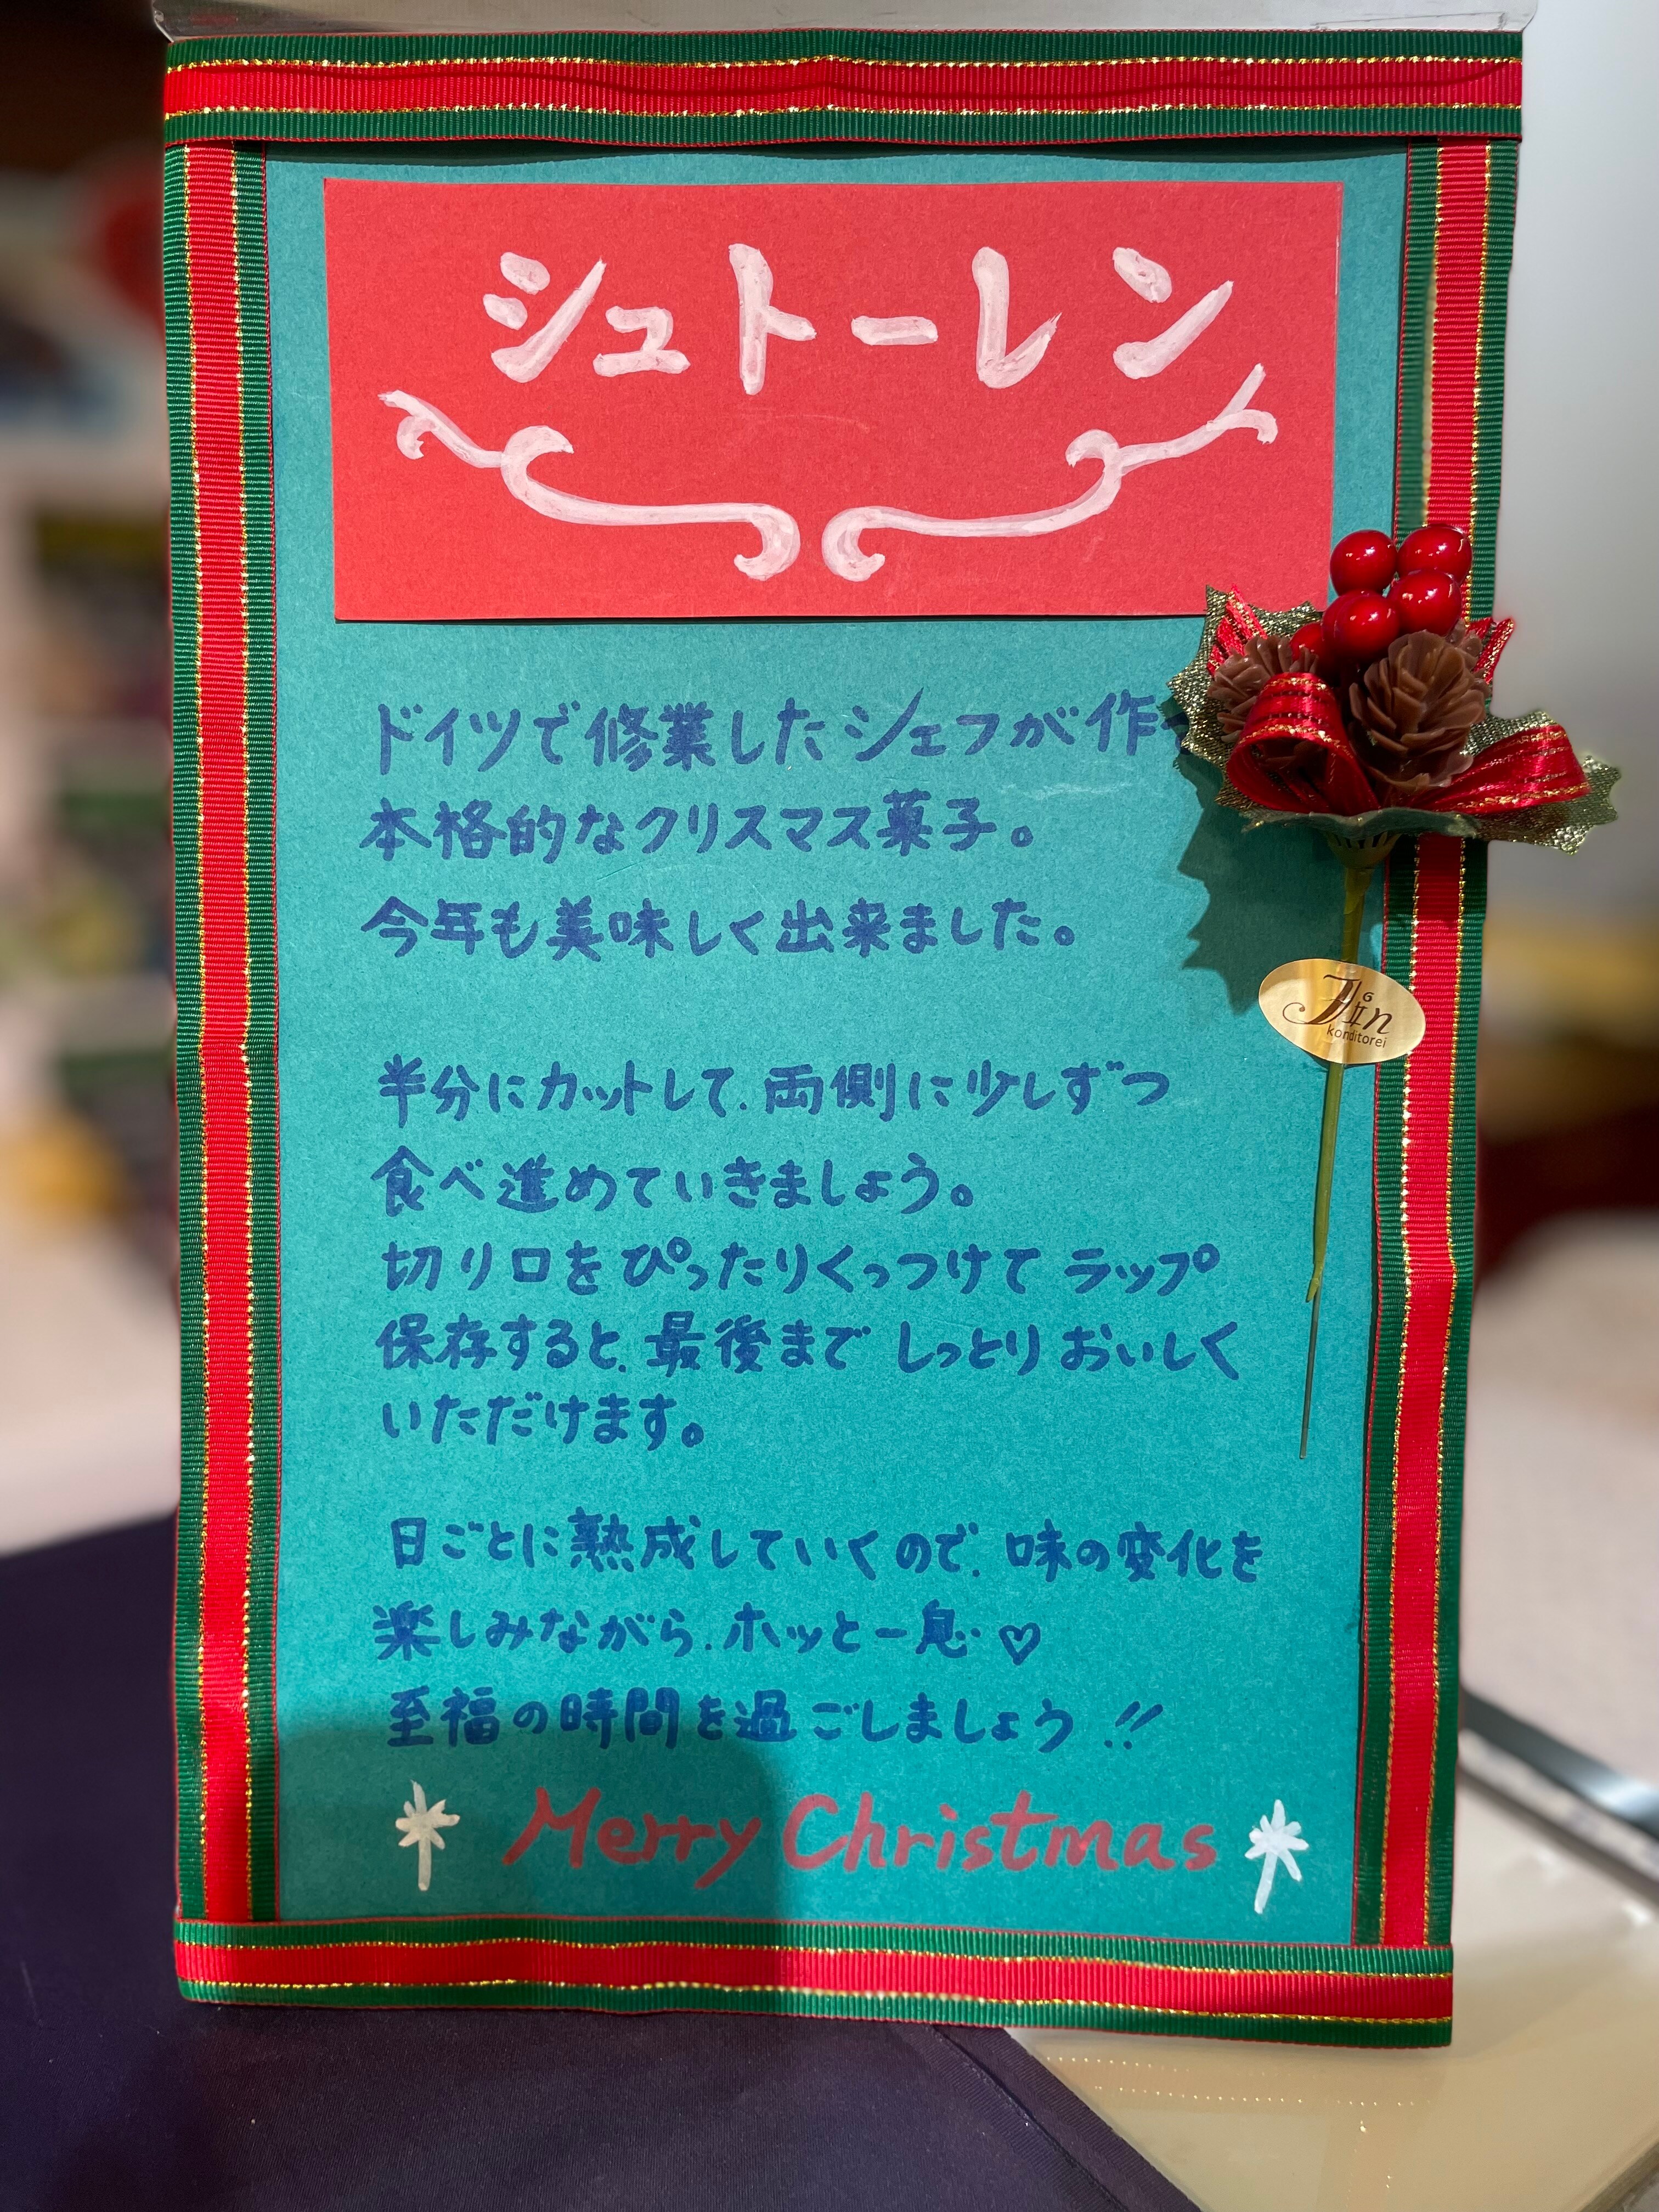 シュトーレン
ドイツで修業したシェフが作
本格的なクリスマス菓子。
今年も美味しく出来ました。
Jin
konditorei
半分にカットして、両側に少しずつ
食べ進めていきましょう。
切り口をぴったりくっつけてラップ
保存すると、最後までしっとりおいしく
いただけます。
日ごとに熟成していくので、味の変化を
楽しみながら、ホッと一息♡
至福の時間を過ごしましょう!!
Merry Christmas